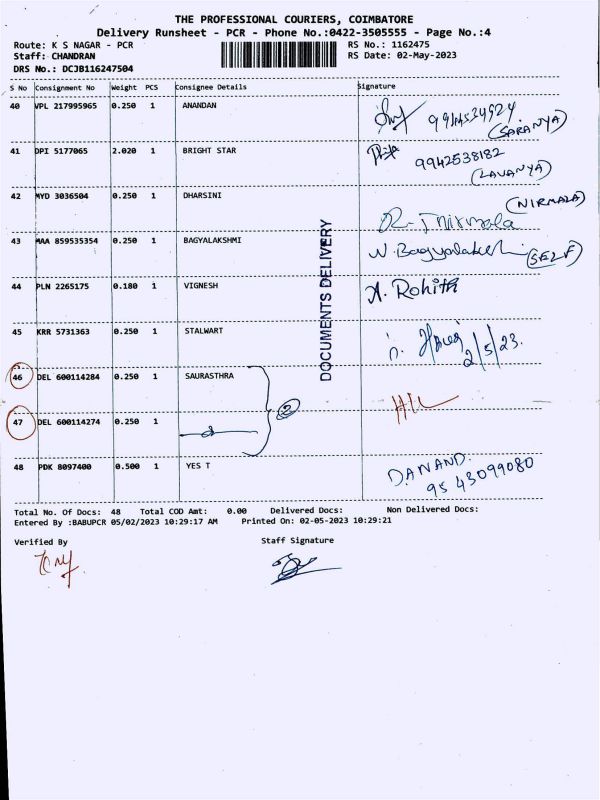 THE PROFESSIONAL COURIERS, COIMBATORE
Delivery Runsheet - PCR - Phone No.:0422-3505555 - Page No.:4
Route: K S NAGAR - PCR RS No.: 1162475
Staff: CHANDRAN RS Date: 02-May-2023
DRS No.: DCJB116247504
S No Consignment No Weight PCS Consignee Details Signature
40 VPL 217995965 0.250 1 ANANDAN
(SARANYA)
41 DPI 5177065 2.020 1 BRIGHT STAR 9942538182
(LAVANYA)
42 MYD 3036504 0.250 1 DHARSINI (NIRMALA)
R. Nirmala
43 MAA 859535354 0.250 1 BAGYALAKSHMI N. Bagyalakshmi (SELF)
44 PLN 2265175 0.180 1 VIGNESH A. Rohith
45 KRR 5731363 0.250 1 STALWART 2/5/23.
46 DEL 600114284 0.250 1 SAURASTHRA
2
47 DEL 600114274 0.250 1
48 PDK 8097400 0.500 1 YES T D.ANAND.
95 43099080
DOCUMENTS DELIVERY
Total No. Of Docs: 48 Total COD Amt: 0.00 Delivered Docs: Non Delivered Docs:
Entered By :BABUPCR 05/02/2023 10:29:17 AM Printed On: 02-05-2023 10:29:21
Verified By Staff Signature